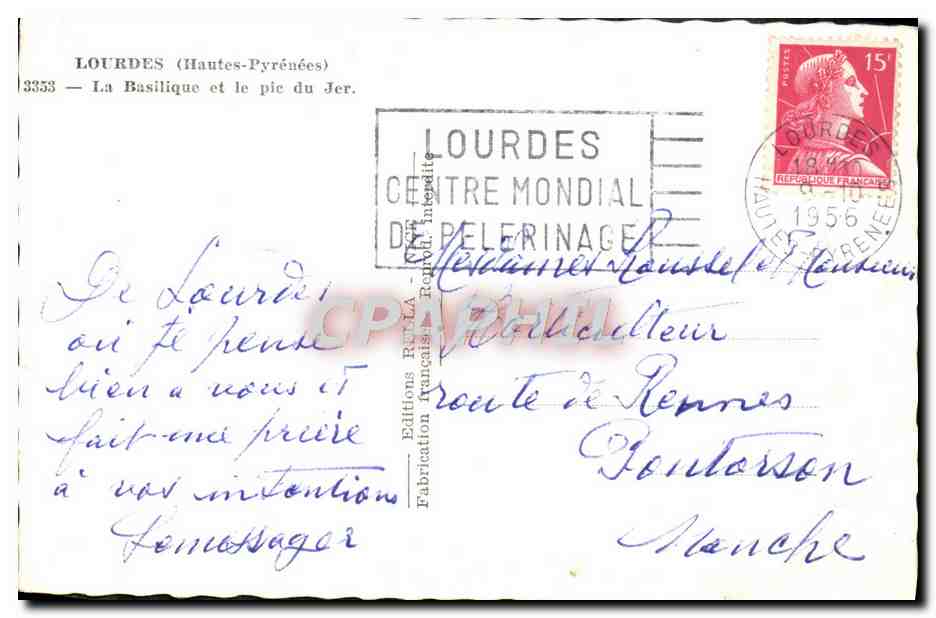 LOURDES (Hautes-Pyrénées)
3353 — La Basilique et le pic du Jer.
LOURDES
CENTRE MONDIAL
DE PELERINAGE
POSTES
15F
REPUBLIQUE FRANCAISE
LOURDES
1956
HAUTES PYRENEES
De Lourdes
où je pense
bien a vous et
fait une prière
à vos intentions
Lemessager
Editions RELLA - NICE
Fabrication française Reprod. interdite
Mesdames Roussel et Monsieur
Horticulteur
route de Rennes
Pontorson
Manche
CPAPHIL